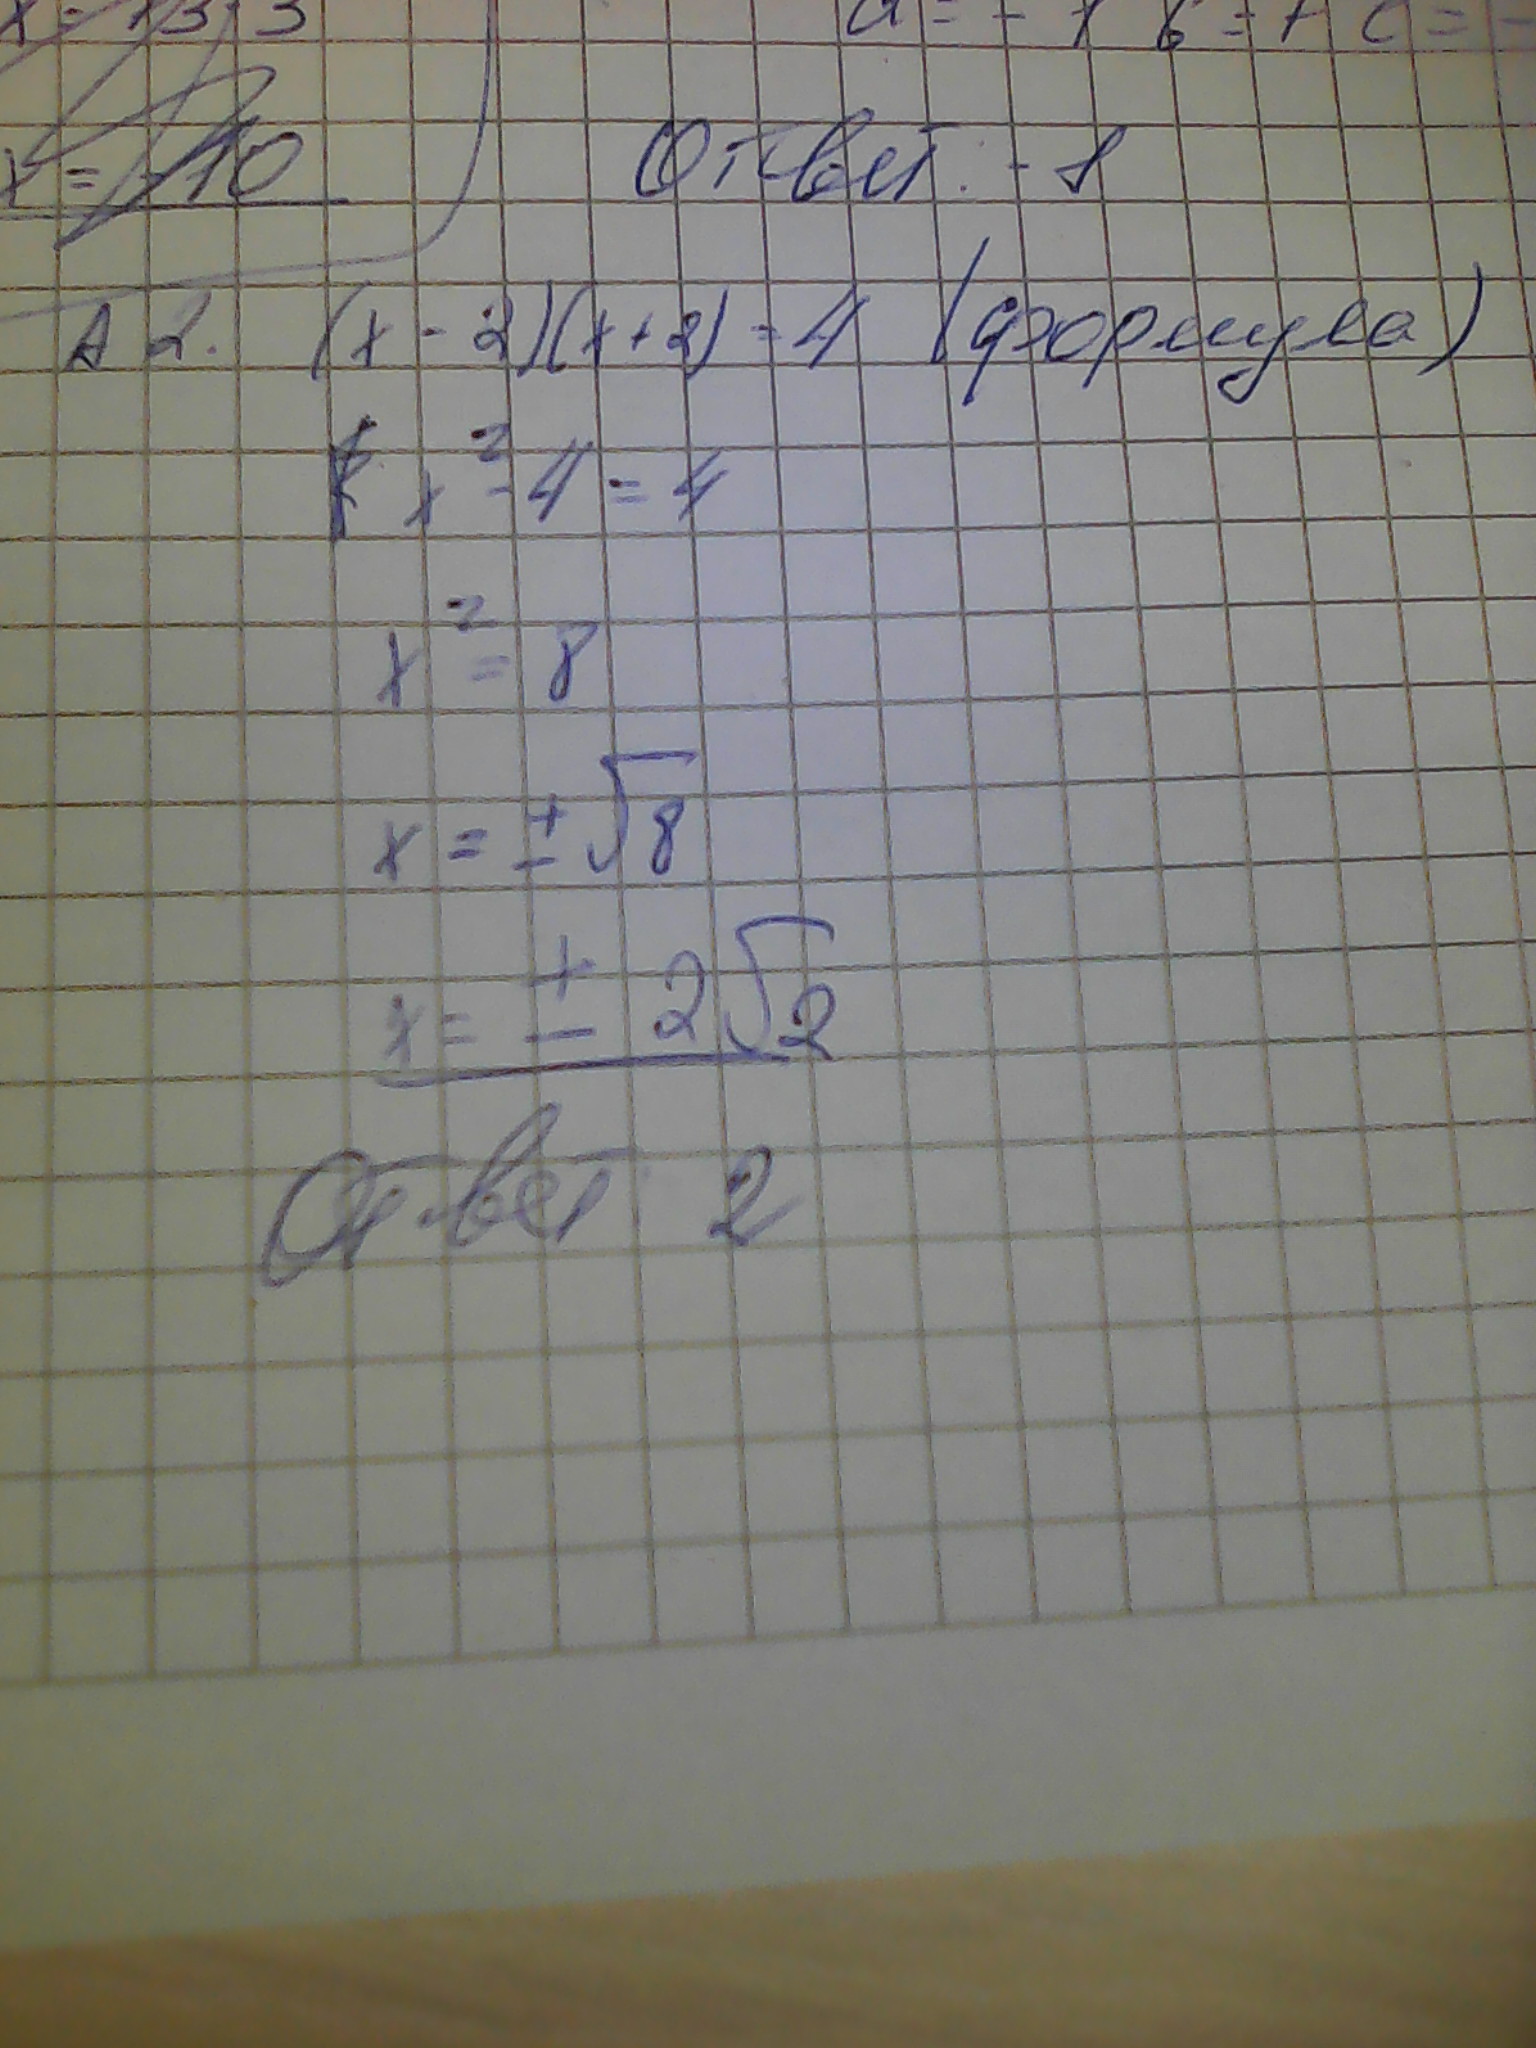 a = -1 b = 1 c = -
x = -10
Ответ: -1
А 2. (x - 2)(x + 2) = 4 (формула)
x² - 4 = 4
x² = 8
x = ±√8
x = ± 2√2
Ответ 2